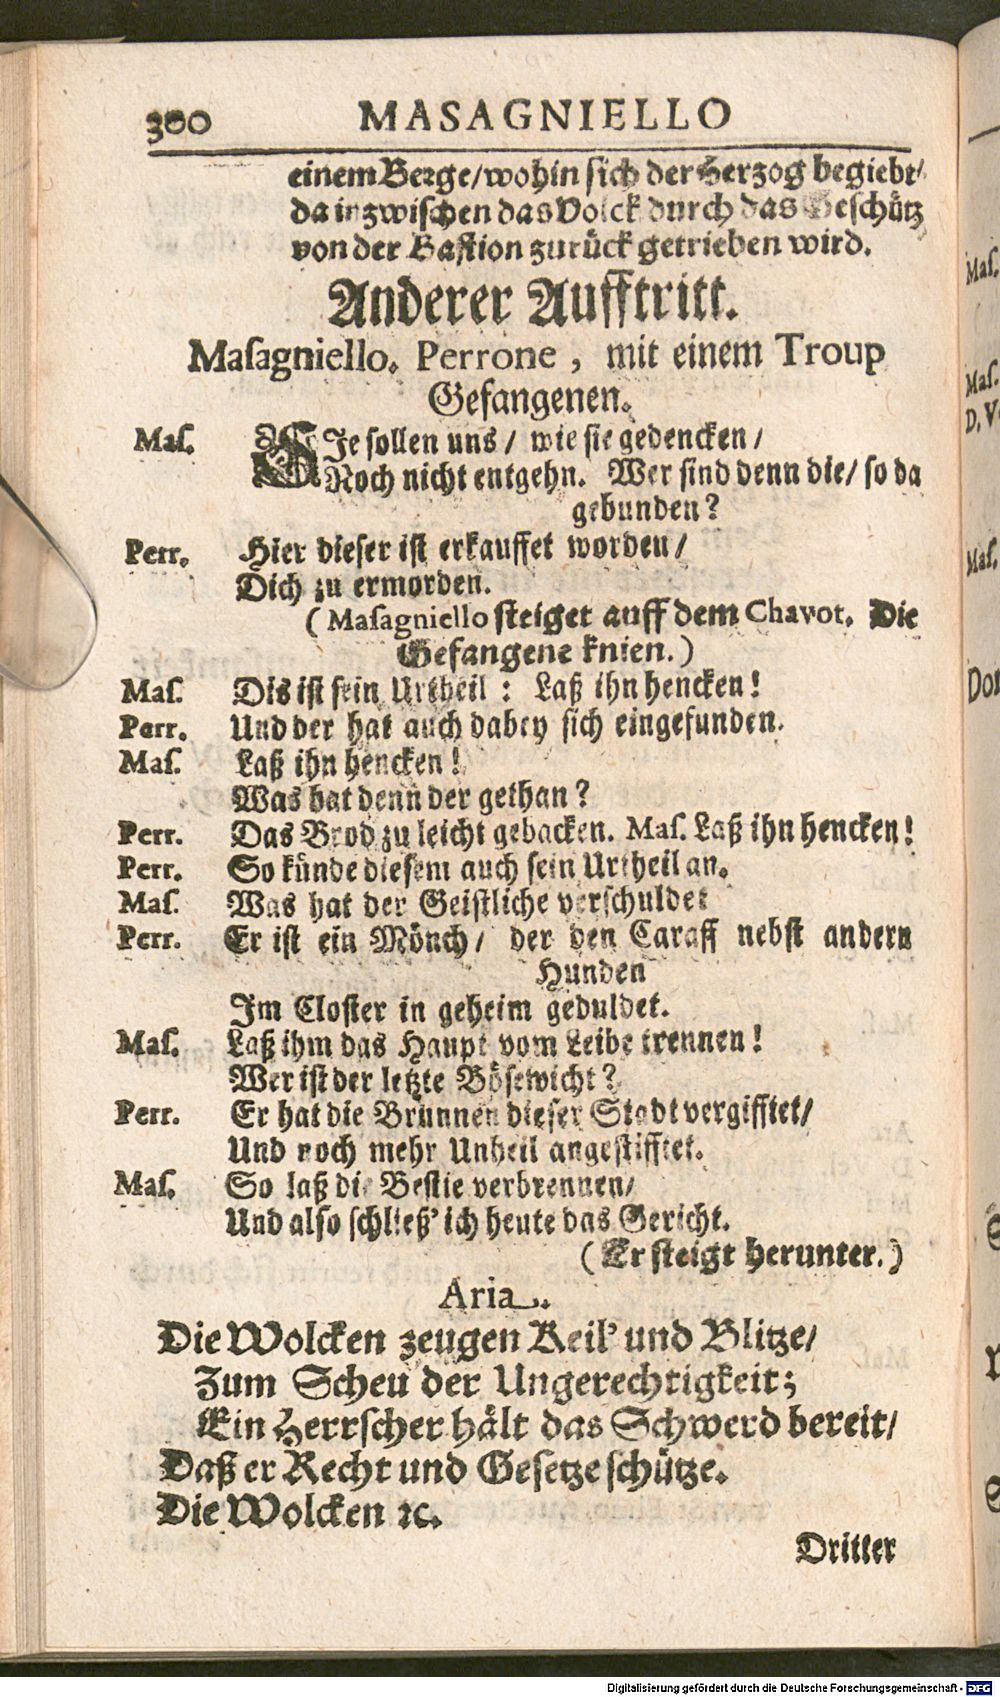 300 MASAGNIELLO
einem Berge/ wohin sich der Herzog begiebt/
da inzwischen das Volck durch das Geschütz
von der Bastion zurück getrieben wird.
Anderer Aufftritt.
Maſagniello. Perrone, mit einem Troup
Gefangenen.
Maſ. SIe sollen uns/ wie sie gedencken/
Noch nicht entgehn. Wer sind denn die/ so da
gebunden?
Perr. Hier dieser ist erkauffet worden/
Dich zu ermorden.
(Maſagniello steiget auff dem Chavot. Die
Gefangene knien.)
Maſ. Dis ist sein Urtheil: Laß ihn hencken!
Perr. Und der hat auch dabey sich eingefunden.
Maſ. Laß ihn hencken!
Was hat denn der gethan?
Perr. Das Brod zu leicht gebacken. Maſ. Laß ihn hencken!
Perr. So künde diesem auch sein Urtheil an.
Maſ. Was hat der Geistliche verschuldet
Perr. Er ist ein Mönch/ der den Caraff nebst andern
Hunden
Im Closter in geheim geduldet.
Maſ. Laß ihm das Haupt vom Leibe trennen!
Wer ist der letzte Bösewicht?
Perr. Er hat die Brunnen dieser Stadt vergifftet/
Und noch mehr Unheil angestifftet.
Maſ. So laß die Bestie verbrennen/
Und also schließ' ich heute das Gericht.
(Er steigt herunter.)
Aria.
Die Wolcken zeugen Keil' und Blitze/
Zum Scheu der Ungerechtigkeit;
Ein Herrscher hält das Schwerd bereit/
Daß er Recht und Gesetze schütze.
Die Wolcken ꝛc.
Dritter
Maſ.
Maſ.
D. V
Maſ.
Don
Digitalisierung gefördert durch die Deutsche Forschungsgemeinschaft - DFG